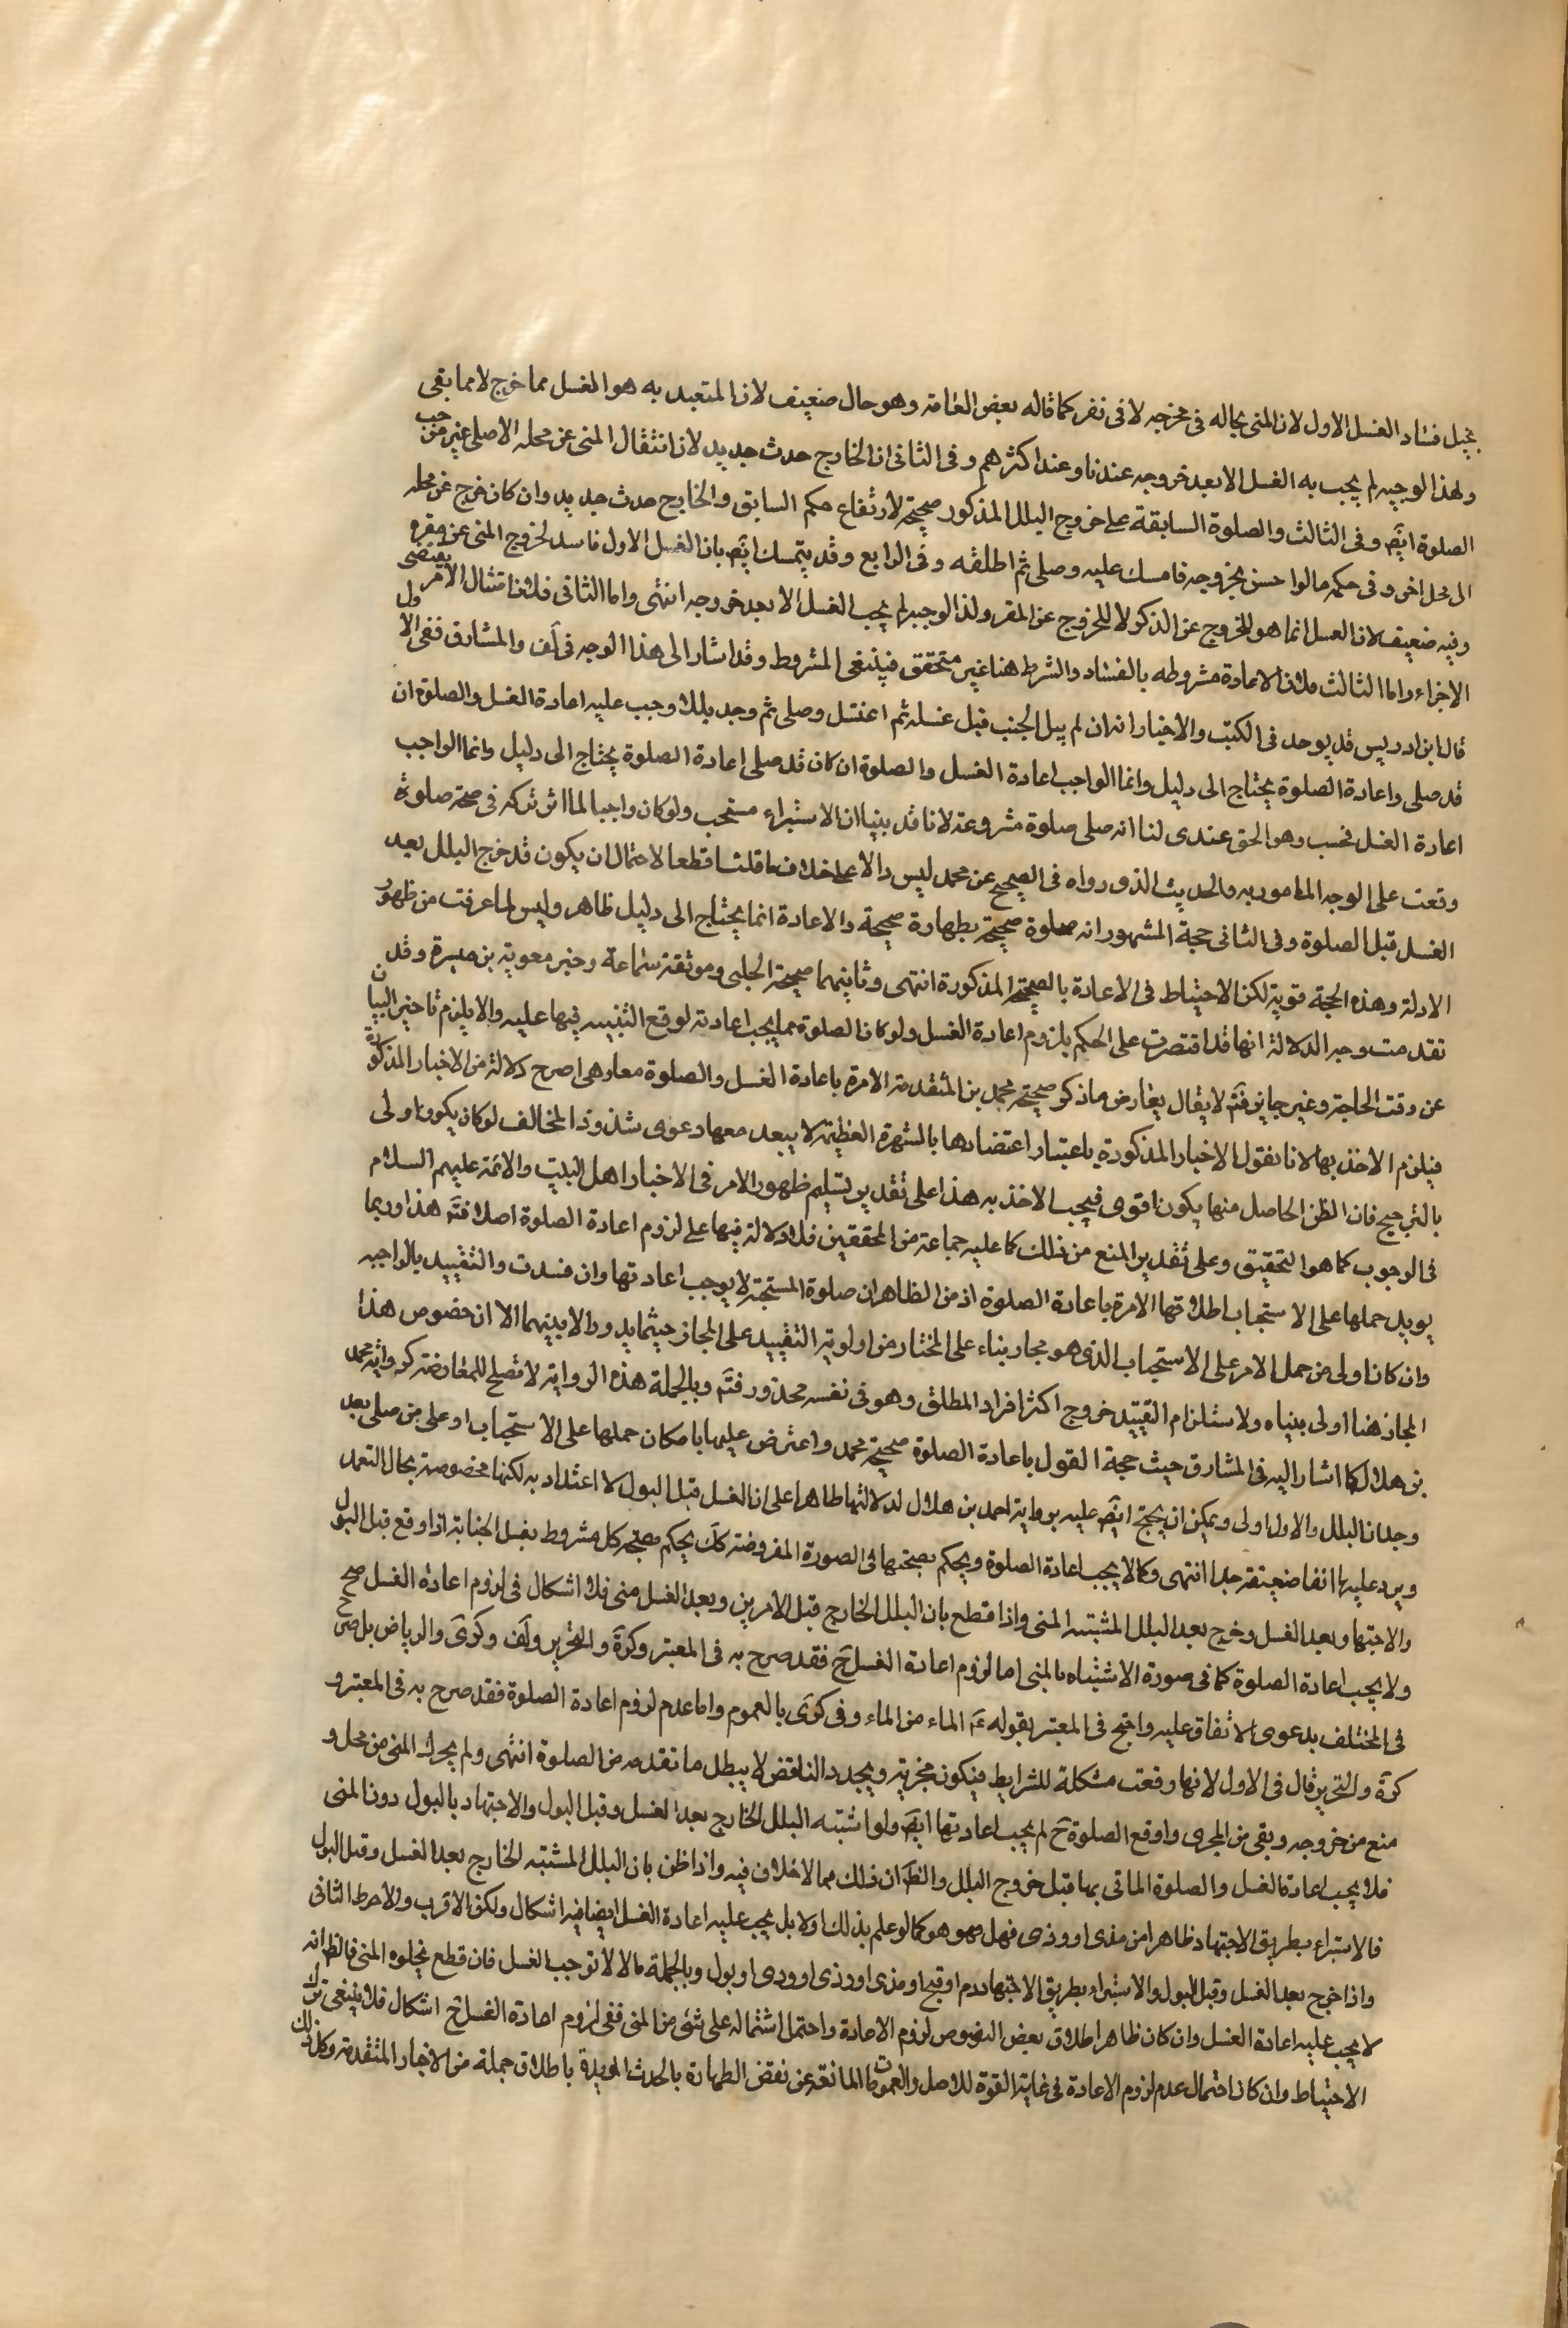 يخيل فساد الغسل الاول لان المنى بحاله فى مخرجه لا فى نفر كما قاله بعض العامة وهو حال ضعيف لان المتعبد به هو الغسل مما خرج لا مما بقى
ولهذا الوجه لم يجب به الغسل الا بعد خروجه عندنا وعند اكثرهم وفى الثانى ان الخارج حدث جديد لان انتقال المنى عن محله الاصلى غير موجب
الصلوة ايضً وفى الثالث والصلوة السابقة على خروج البلل المذكور صحيحة لارتفاع حكم السابق والخارج حدث جديد وان كان خرج عن محله
الى محل اخر وفى حكمه مالوا حسن بخروجه فامسك عليه وصلى ثم اطلقه وفى الرابع وقد يتمسك ايضً بان الغسل الاول فاسد لخروج المنى عن مقره
وفيه ضعيف لان الغسل انما هو للخروج عن الذكر لا للخروج عن المقر ولذا الوجه لم يجب الغسل الا بعد خروجه انتهى واما الثانى فلان امتثال الامر يقتضى
الاجزاء واما الثالث فلان الاعادة مشروطه بالفساد والشرط هنا غير متحقق فينتفى المشروط وقد اشار الى هذا الوجه فى لف والمشارق ففى الاول
قال ابن ادريس قد يوجد فى الكتب والاخبار انه ان لم يبل الجنب قبل غسله ثم اغتسل وصلى ثم وجد بللا وجب عليه اعادة الغسل والصلوة ان
قد صلى واعادة الصلوة يحتاج الى دليل وانما الواجب اعادة الغسل والصلوة ان كان قد صلى اعادة الصلوة يحتاج الى دليل وانما الواجب
اعادة الغسل فحسب وهو الحق عندى لنا انه صلى صلوة مشروعة لانا قد بينا ان الاستبراء مستحب ولو كان واجبا لما اثر تركه فى صحة صلوة
وقعت على الوجه المامور به والحديث الذى رواه فى الصحيح عن محمد ليس دالا على خلاف ما قلنا قطعا لاحتمال ان يكون قد خرج البلل بعد
الغسل قبل الصلوة وفى الثانى حجة المشهور انه صلوة صحيحة بطهارة صحيحة والاعادة انما يحتاج الى دليل ظاهر وليس لما عرفت من ظهور
الادلة وهذه الحجة قوية لكن الاحتياط فى الاعادة بالصحيحة المذكورة انتهى وثانيهما صحيحة الحلبى وموثقة سماعة وخبر معوية بن ميسرة وقد
تقدمت وجه الدلالة انها قد اقتصرت على الحكم بلزوم اعادة الغسل ولو كان الصلوة مما يجب اعادته لوقع التنبيه فيها عليه والا يلزم تاخير البيان
عن وقت الحاجة وغير جايز فتم لا يقال يعارض ما ذكر صحيحة محمد بن المتقدمة الامرة باعادة الغسل والصلوة معا وهى اصرح دلالة من الاخبار المذكورة
فيلزم الاخذ بها لانا نقول الاخبار المذكورة باعتبار اعتضادها بالشهرة العظيمة لا يبعد معها دعوى شذوذ المخالف لو كان يكون اولى
بالترجيح فان الظن الحاصل منها يكون اقوى فيجب الاخذ به هذا على تقدير تسليم ظهور الامر فى الاخبار اهل البيت والائمة عليهم السلام
فى الوجوب كما هو التحقيق وعلى تقدير المنع من ذلك كما عليه جماعة من المحققين فلا دلالة فيها على لزوم اعادة الصلوة اصلا فتم هذا وربما
يويد حملها على الاستحباب اطلاقها الامرة باعادة الصلوة اذ من الظاهر ان صلوة المستحبة لا يوجب اعادتها وان فسدت والتقييد بالواجبه
وان كان اولى من حمل الامر على الاستحباب الذى هو مجاز بناء على المختار من اولوية التقييد على المجاز حيثما يدور الامر بينهما الا ان خصوص هذا
المجاز هنا اولى بيناه ولاستلزام التقييد خروج اكثر افراد المطلق وهو فى نفسه محذور فتم وبالجملة هذه الرواية لا تصلح للمعارضة كرواية محمد
بن هلال كما اشار اليه فى المشارق حيث حجة القول باعادة الصلوة صحيحة محمد واعترض عليها بامكان حملها على الاستحباب او على من صلى بعد
وجدان البلل والاول اولى ويمكن ان يحتج ايضً عليه برواية احمد بن هلال لدلالتها ظاهرا على ان الغسل قبل البول لا اعتداد به لكنها مخصوصة بحال التعمد
ويرد عليها انها ضعيفة جدا انتهى وكما لا يجب اعادة الصلوة ويحكم بصحتها فى الصورة المفروضة كك يحكم بصحة كل مشروط بغسل الجنابة اذا وقع قبل البول
والاجتهاد وبعد الغسل وخرج بعد البلل المشتبه المنى واذا قطع بان البلل الخارج قبل الامرين وبعد الغسل منى فلا اشكال فى لزوم اعادة الغسل صح ح
ولا يجب اعادة الصلوة كما فى صورة الاشتباه بالمنى اما لزوم اعادة الغسل ح فقد صرح به فى المعتبر وكرة والتحرير ولف وكرى والرياض بل صرح
فى المختلف بدعوى الاتفاق عليه واحتج فى المعتبر بقوله ع الماء من الماء وفى كرى بالعموم واما عدم لزوم اعادة الصلوة فقد صرح به فى المعتبر و
كرة والتحرير قال فى الاول لانها وقعت مشكلة للشرايط فيكون مجزية ويجدد الناقض لا يبطل ما تقدمه من الصلوة انتهى ولم يحرك المنى من محل و
منع من خروجه وبقى من المجرى واوقع الصلوة ح لم يجب اعادتها ايضً ولو اشتبه البلل الخارج بعد الغسل وقبل البول والاجتهاد بالبول دون المنى
فلا يجب اعادة الغسل والصلوة الماتى بها قبل خروج البلل والظ ان ذلك مما لا خلاف فيه واذا ظن بان البلل المشتبه الخارج بعد الغسل وقبل البول
فالاستبراء بطريق الاجتهاد ظاهرا من مذى او وذى فهل هو كما لو علم بذلك اولا بل يجب عليه اعادة الغسل ايضا فيه اشكال ولكن الاقرب والاحوط الثانى
واذا خرج بعد الغسل وقبل البول والاستبراء بطريق الاجتهاد دم او قيح او مذى او وذى او ودى او بول وبالجملة ما لا توجب الغسل فان قطع بخلوه المنى فالظ انه
لا يجب عليه اعادة الغسل وان كان ظاهر اطلاق بعض النصوص لزوم الاعادة واحتمل اشتماله على شئ من المنى ففى لزوم اعادة الغسل ح اشكال فلا ينبغى ترك
الاحتياط وان كان احتمال عدم لزوم الاعادة فى غاية القوة للاصل والعمومات المانعة عن نقض الطهارة بالحدث المويدة باطلاق جملة من الاخبار المتقدمة وكذلك